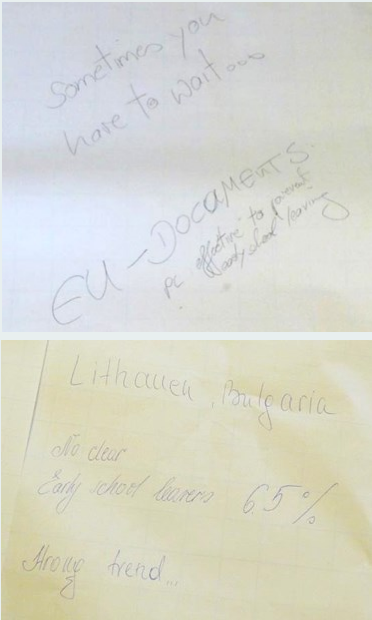 Sometimes you
have to wait...
EU-DOCUMENTS
pc effective to prevent
early school leaving
Lithauen, Bulgaria
No clear
Early school leavers 6.5%
Strong trend...